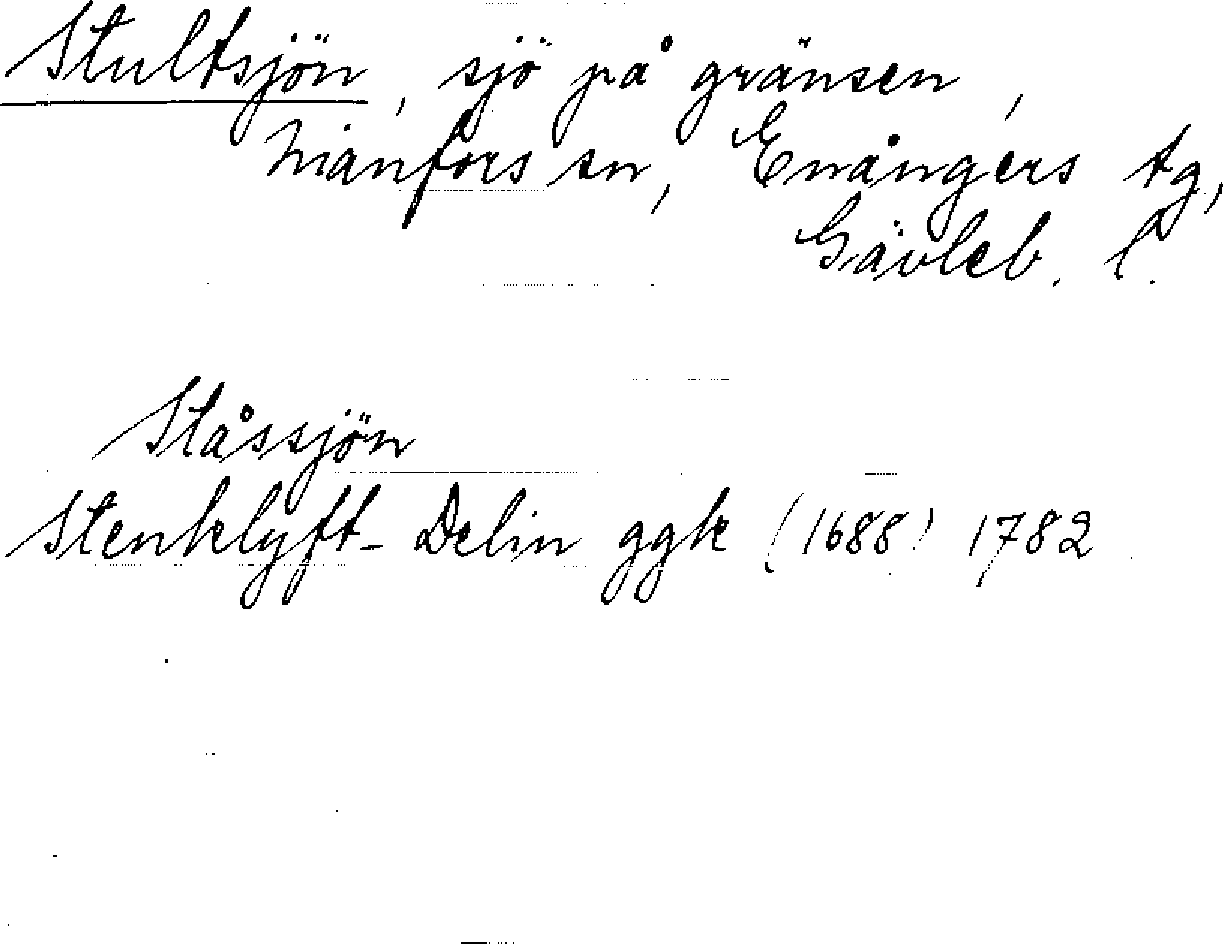 Stultsjön, sjö på gränsen,
Nianfors sn, Enångers tg,
Gävleb. l.
Ståssjön
Stenklyft- Delin ggk (1688) 1782